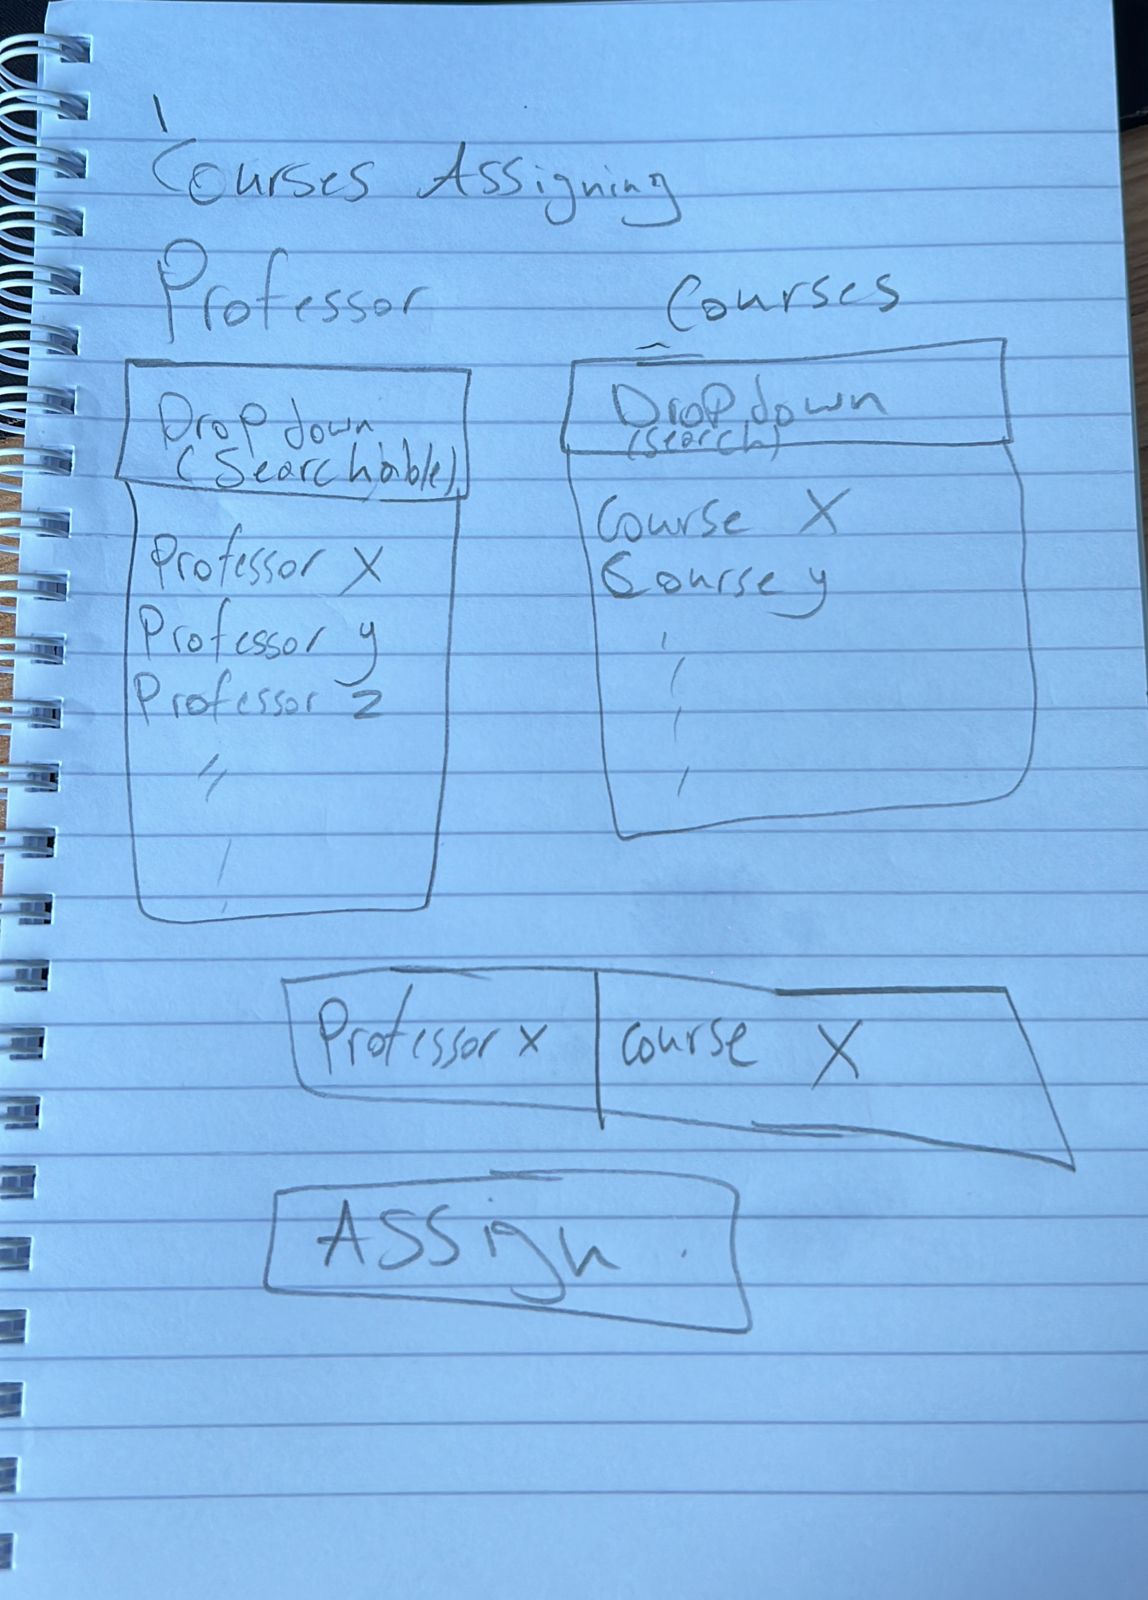 Courses Assigning
Professor
Courses
Drop down
(Searchable)
Professor X
Professor y
Professor z
Drop down
(search)
Course X
Course y
Professor x
course X
Assign